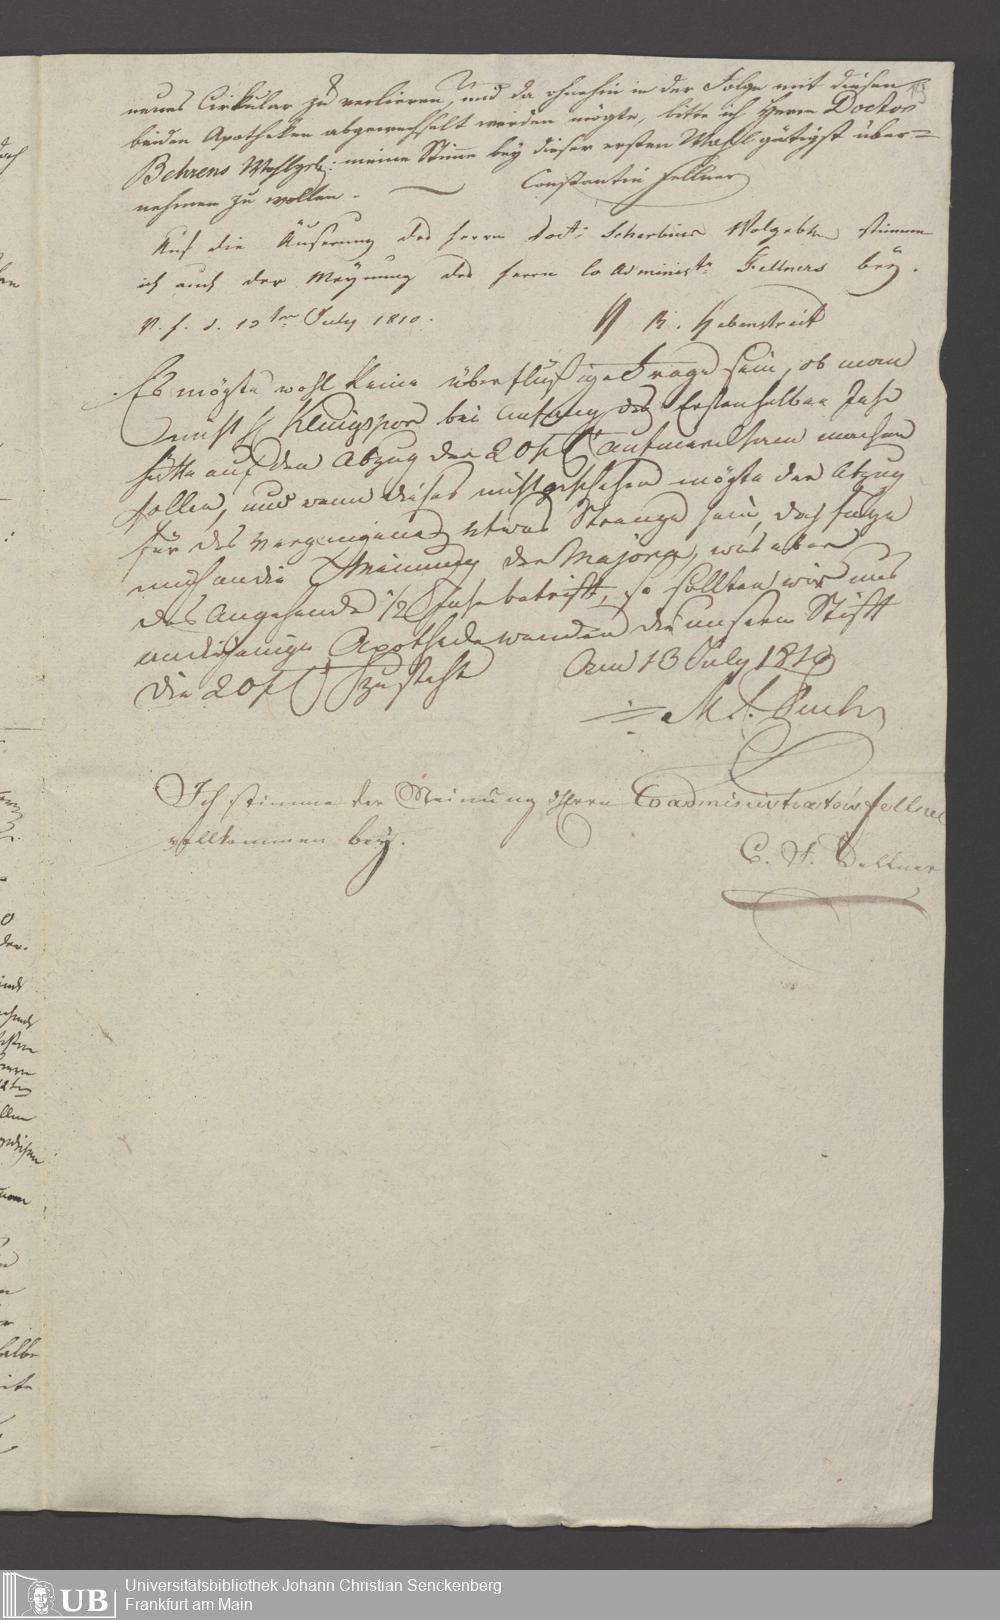 neues Cirkular zu verlieren, und da ohnehin in der Folge mit diesen
beiden Apotheken abgewechselt werden mögte, bitte ich Herrn Doctor
Behrens Wohlgeb: meine Stimme bey dieser ersten Wahl gütigst über-
nehmen zu wollen. Constantin Fellner
Auf die Äuserung des Herrn Doct: Scherbius Wolgebh stimme
ich auch der Meynung des Herrn Co Administr Fellners bey.
d. 12ten July 1810. Hebenstreit
Es mögte wohl keine überflüssige Frage sein, ob man
nicht H Klingspor bei Anfang des Ersten halben Jahr
hätte auf den Abzug der 20 pCt aufmerksam machen
sollen, und wenn dieses nicht geschehen mögte der Abzug
für das vergangene etwas Strenge sein, doch füge
mich an die Meinung der Majora, was aber
das Angehende 1/2 Jahr betrifft, so sollten wir uns
an diejenige Apotheke wenden die unserm Stift
die 20 pCt zusteht Am 13 July 1810
Ich stimme der Meinung Herrn Coadministrators Fellner
vollkommen bey.
C. F. Fellner
UB
Universitätsbibliothek Johann Christian Senckenberg
Frankfurt am Main